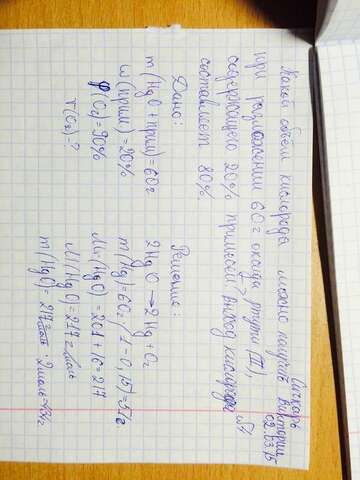 Личкарь
Виктории
02.03.15
Какой объём кислорода можно получить
при разложении 60 г оксида ртути (II),
содержащего 20% примесей (выход кислорода
составляет 80%
Дано:
m(HgO + прим) = 60 г
ω(прим) = 20%
φ(O₂) = 90%
V(O₂) - ?
Решение:
2HgO → 2Hg + O₂
m(Hg) = 60г (1 - 0,15) = 51г
M(HgO) = 201 + 16 = 217
M(HgO) = 217 г/моль
m(HgO) = 217 г/моль · 2моль = 434г